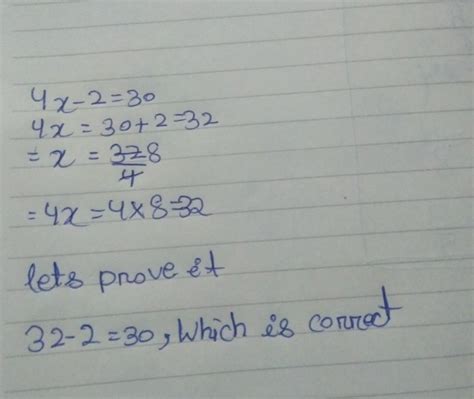 4x-2=30
4x = 30+2=32
= x = 32 8
4
= 4x = 4x8=32
lets prove it
32-2=30, Which is correct